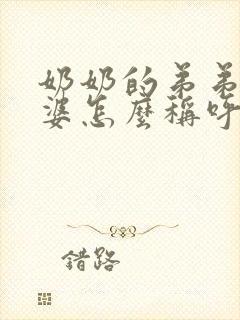 奶奶的弟弟
婆怎麼稱呼
錯路